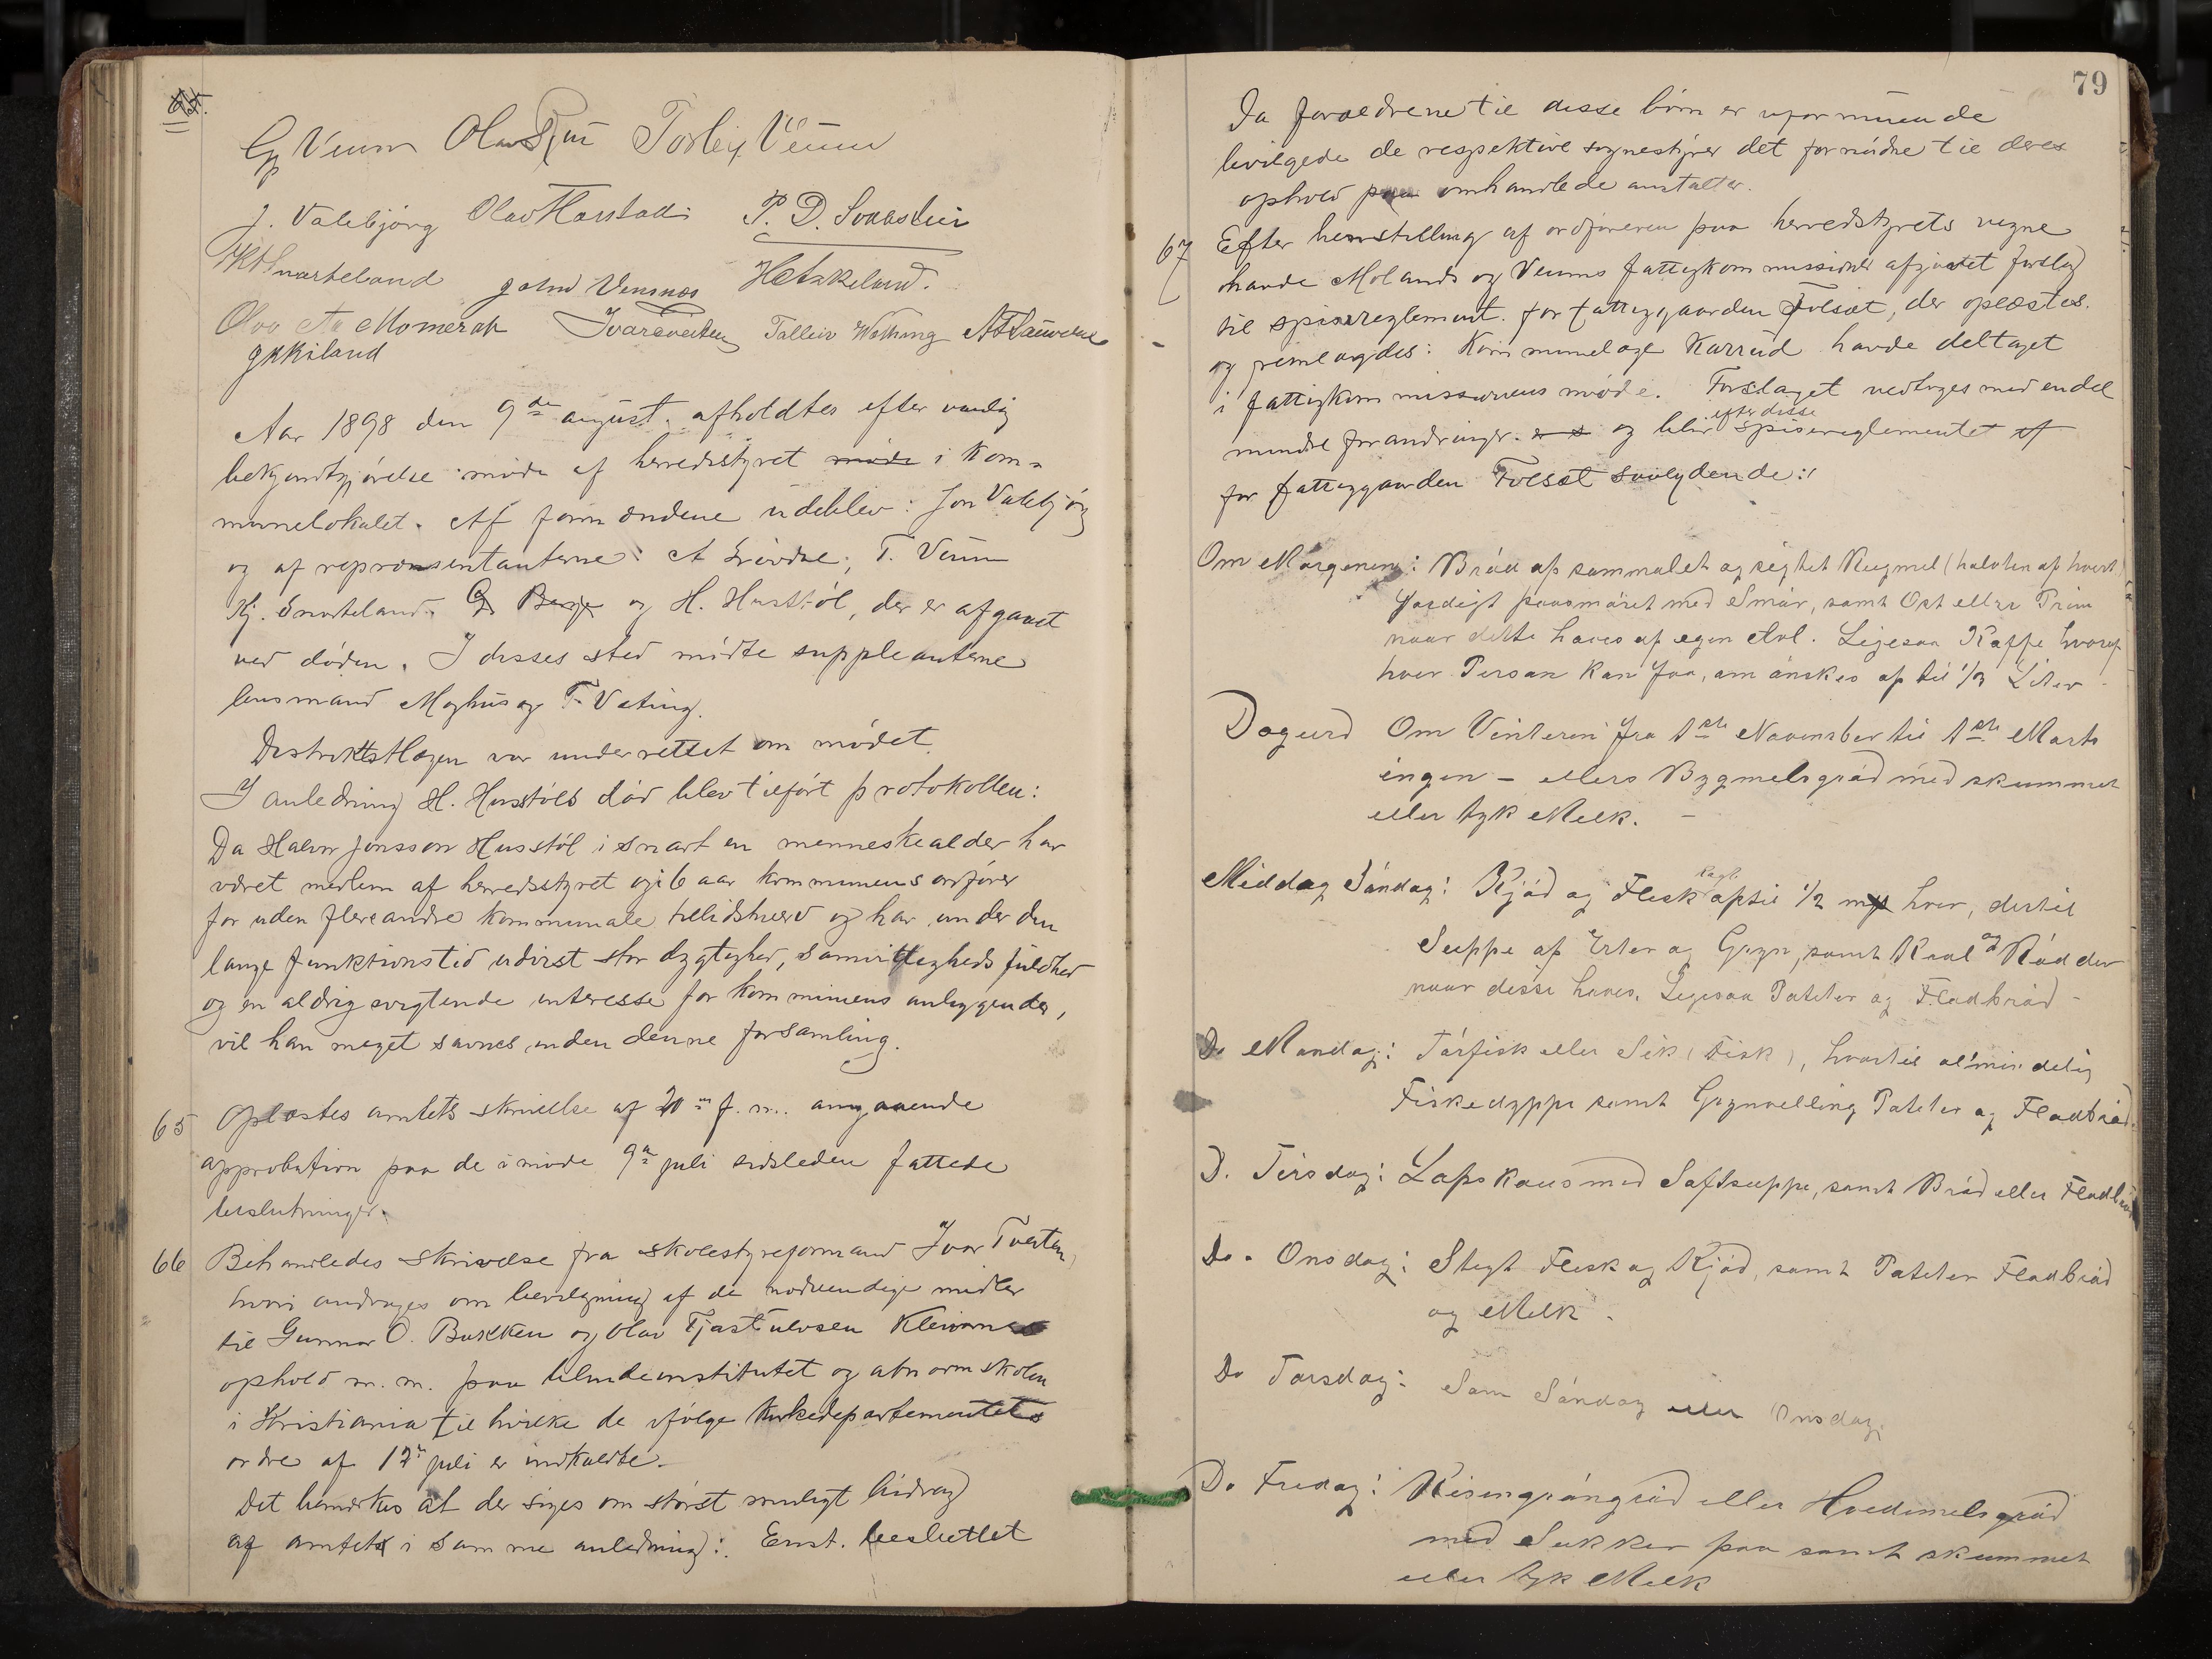 65.
G Veum Olav Rui Torleiv Veum
J. Valebjörg Olav Harstad P. D. Svaastein
K H Snarteland John Vensnes H Askeland.
Olav Aa Momrak Ivar Tveiten Talleiv Wathing
G K Kiland
Aar 1898 den 9de august. afholdtes efter vanlig
bekjendtgjörelse möde af herredsstyret möde i kom=
munelokalet. Af formændene udeblev: Jon Valebjörg
og af repræsentanterne: T. Veum
Kj. Snarteland, G. Berge og H. Husstöl, der er afgaaet
ved döden. I disses sted mödte suppleanterne
lensmand Moghus og T. Vating.
Distriktslægen var underrettet om mödet.
I anledning H. Husstöls död blev tilfört protokollen:
Da Halvor Jonsson Husstöl i snart en menneskealder har
været medlem af herredsstyret og i 6 aar kommunens ordförer
for uden flere andre kommunale tillidshverv og har under den
lange funktionstid udvist stor dygtighed, samvittighedsfuldhed
og en aldrig svigtende interesse for kommunens anliggender,
vil han meget savnes inden denne forsamling.
65 Oplæstes amtets skrivelse af 20de f. m. angaaende
approbation paa de i möde 9de juli sidstleden fattede
beslutninger.
66 Behandledes skrivelse fra skolestyreformand Ivar Tveiten,
hvori andrages om bevilgning af de nödvendige midler
til Gunnar O. Bakken og Olav Tjostulvsen Kleivarnes
ophold m. m. paa blindeinstitutet og abnormskolen
i Kristiania til hvilke de ifölge kirkedepartementets
ordre af 12te juli er indkaldte.
Det bemerkes at der söges om störst muligt bidrag
af amtet i samme anledning: Enst. besluttet
79
Da forældrene til disse börn er uformuende
bevilgede de respektive sognestyrer det fornödne til deres
ophold paa omhandlede anstalter.
67 Efter henstilling af ordföreren paa herredstyrets vegne
havde Molands og Veums fattigkommissioner afgivet forslag
til spisereglement for fattiggaarden Folsæt, der oplæstes
og fremlagdes: Kommunelæge Karrud havde deltaget
i fattigkommissionens möde. Forslaget vedtoges med endel
mindre forandringer og blir efter disse spisereglementet
for fattiggaarden Folsæt saalydende:
Om Morgenen: Bröd af sammalet og sigtet Rugmel (halvten af hvert)
Færdigt paasmöret med Smör, samt Ost eller Prim
naar dette haves af egen Avl. Ligesaa Kaffe hvoraf
hver Person kan faa, om önskes op til 1/3 Liter
Dogurd Om Vinteren fra 1ste November til 1ste Marts
ingen - ellers Bygmelsgröd med skummet
eller tyk Melk. -
Middag Söndag: Kjöd og Flesk kogt optil 1/2 hver, dertil
Suppe af Erter og Gryn, samt Kaal og Rödder
naar disse haves. Ligesaa Poteter og Fladbröd -
Do Mandag: Törfisk eller Sik (Fisk), hvortil almindelig
Fiskeduppe samt Grynvelling Poteter og Fladbröd.
D. Tirsdag: Lapskaus med Saftsuppe, samt Bröd eller Fladbröd
Do. Onsdag: Stegt Flesk og Kjöd, samt Poteter Fladbröd
og Melk.
Do Torsdag: Som Söndag eller Onsdag.
Do Fredag: Risengröngröd eller Hvedemelsgröd
med Sukker paa samt skummet
eller tyk Melk